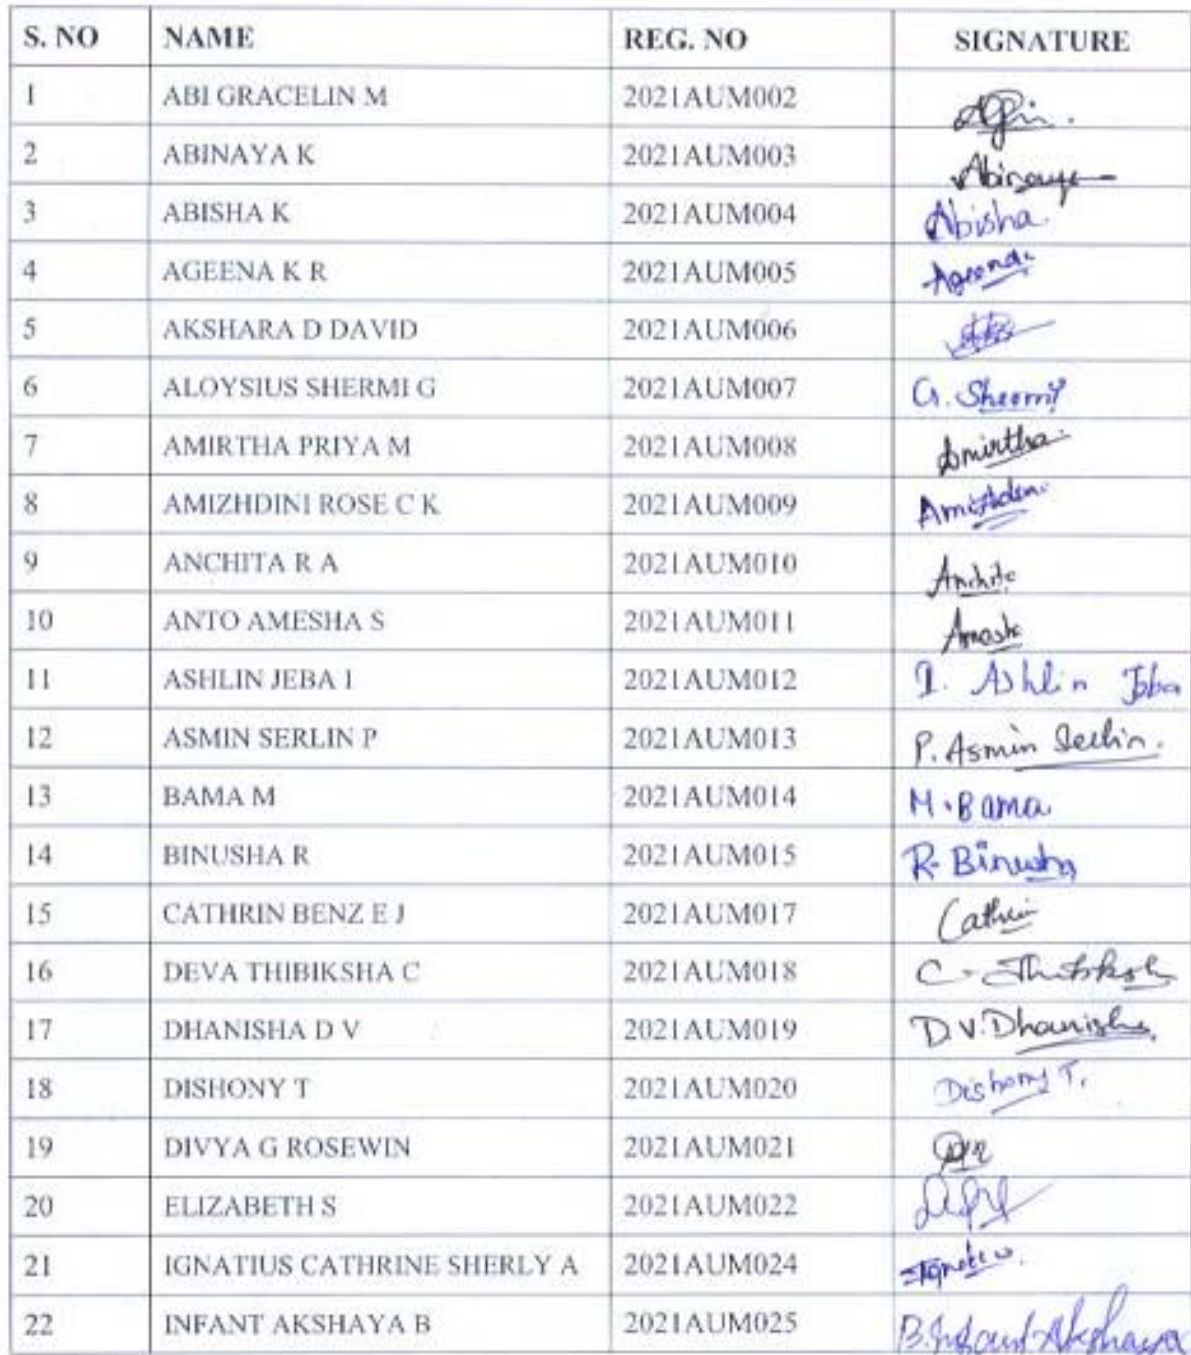 S. NO NAME REG. NO SIGNATURE
1 ABI GRACELIN M 2021AUM002
2 ABINAYA K 2021AUM003 Abinaya
3 ABISHA K 2021AUM004 Abisha.
4 AGEENA K R 2021AUM005 Ageena.
5 AKSHARA D DAVID 2021AUM006
6 ALOYSIUS SHERMI G 2021AUM007 G. Shermi
7 AMIRTHA PRIYA M 2021AUM008 Amirtha
8 AMIZHDINI ROSE C K 2021AUM009
9 ANCHITA R A 2021AUM010 Anchita
10 ANTO AMESHA S 2021AUM011
11 ASHLIN JEBA I 2021AUM012 I. Ashlin Jeba
12 ASMIN SERLIN P 2021AUM013 P. Asmin Serlin.
13 BAMA M 2021AUM014 M. Bama
14 BINUSHA R 2021AUM015 R. Binusha
15 CATHRIN BENZ E J 2021AUM017 Cathrin
16 DEVA THIBIKSHA C 2021AUM018 C. Thibiksha
17 DHANISHA D V 2021AUM019 D.V. Dhanisha
18 DISHONY T 2021AUM020 Dishony T.
19 DIVYA G ROSEWIN 2021AUM021
20 ELIZABETH S 2021AUM022
21 IGNATIUS CATHRINE SHERLY A 2021AUM024
22 INFANT AKSHAYA B 2021AUM025 B. Infant Akshaya